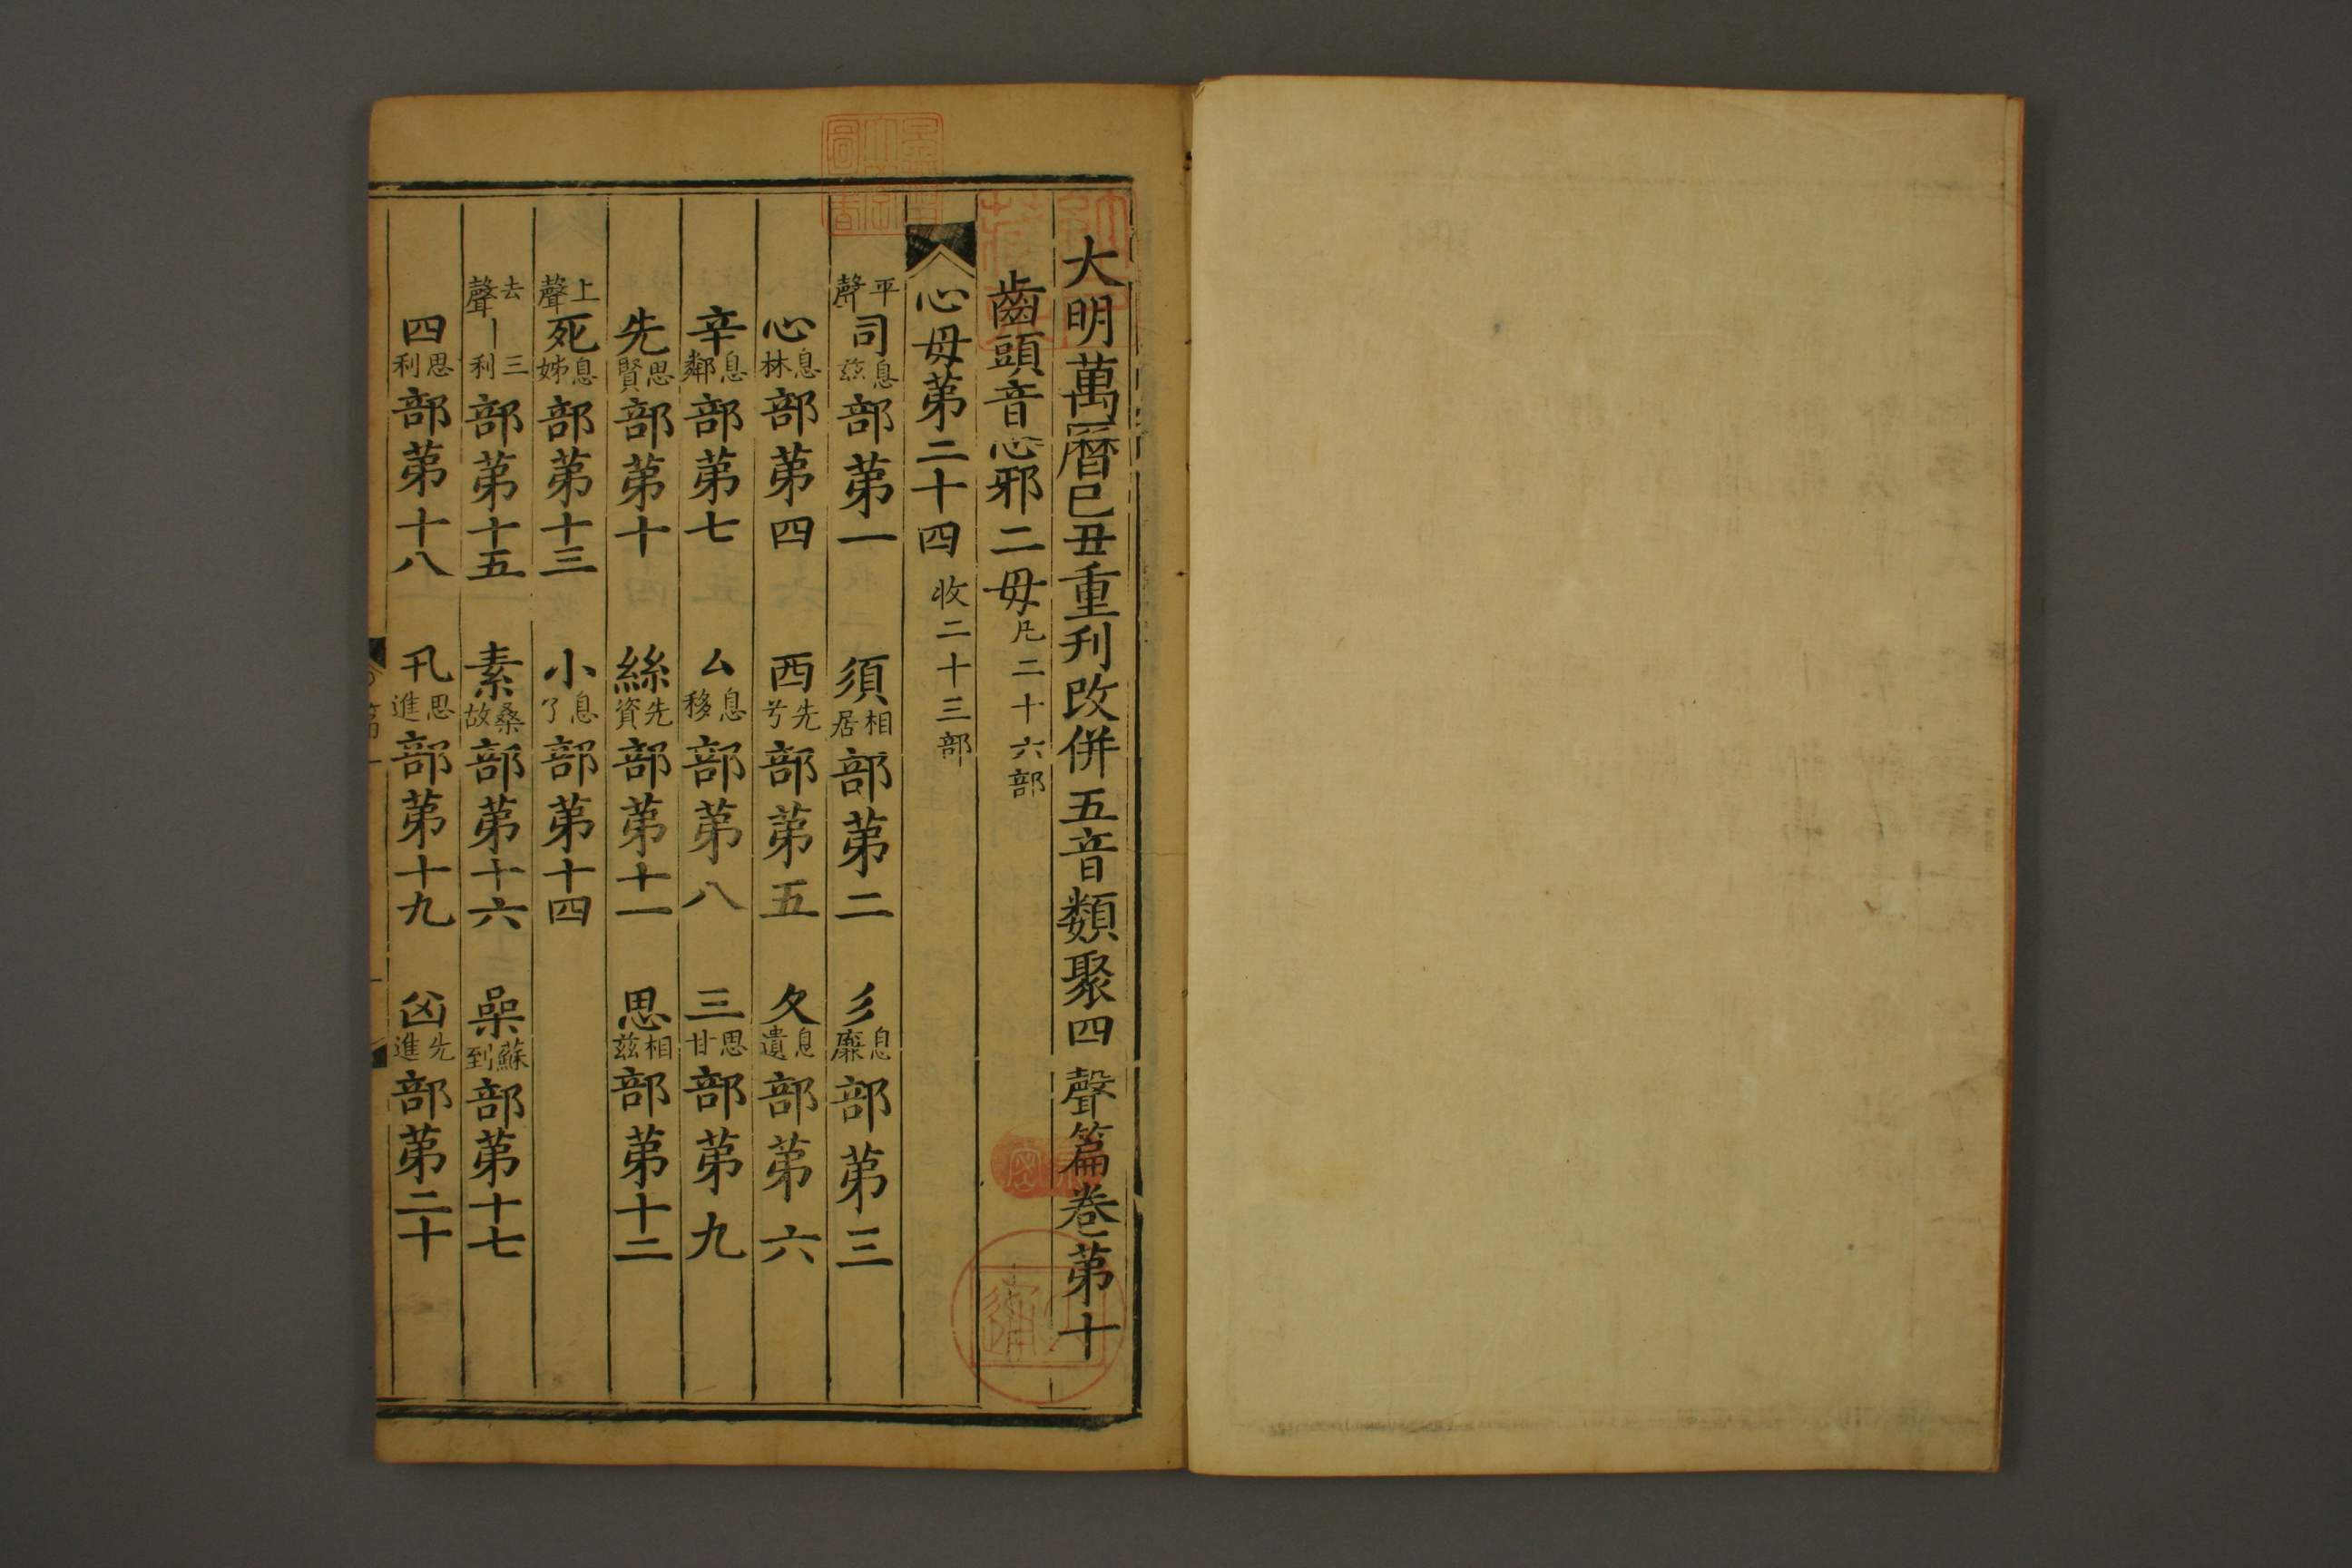 大明萬曆己丑重刋改併五音類聚四聲篇卷第十
齒頭音心邪二母凡二十六部
心母第二十四收二十三部
平聲司息兹部第一 須相居部第二 彡息廉部第三
心息林部第四 西先兮部第五 夊息遺部第六
辛息鄰部第七 厶息移部第八 三思甘部第九
先思賢部第十 絲先資部第十一 思相兹部第十二
上聲死息姊部第十三 小息了部第十四
去聲三利部第十五 素桑故部第十六 喿蘇到部第十七
四思利部第十八 卂思進部第十九 囟先進部第二十